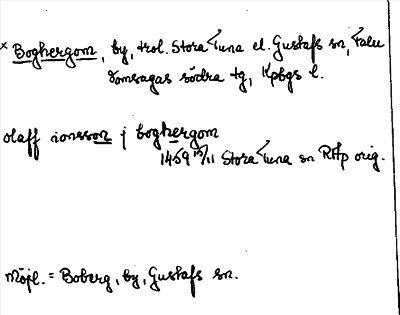 × Boghergom, by, trol. Stora Tuna el. Gustafs sn, Falu
domsagas södra tg, Kpbgs l.
olaff ionsson j boghergom
1459 15/11 Stora Tuna sn RAp orig.
Möjl. = Boberg, by, Gustafs sn.